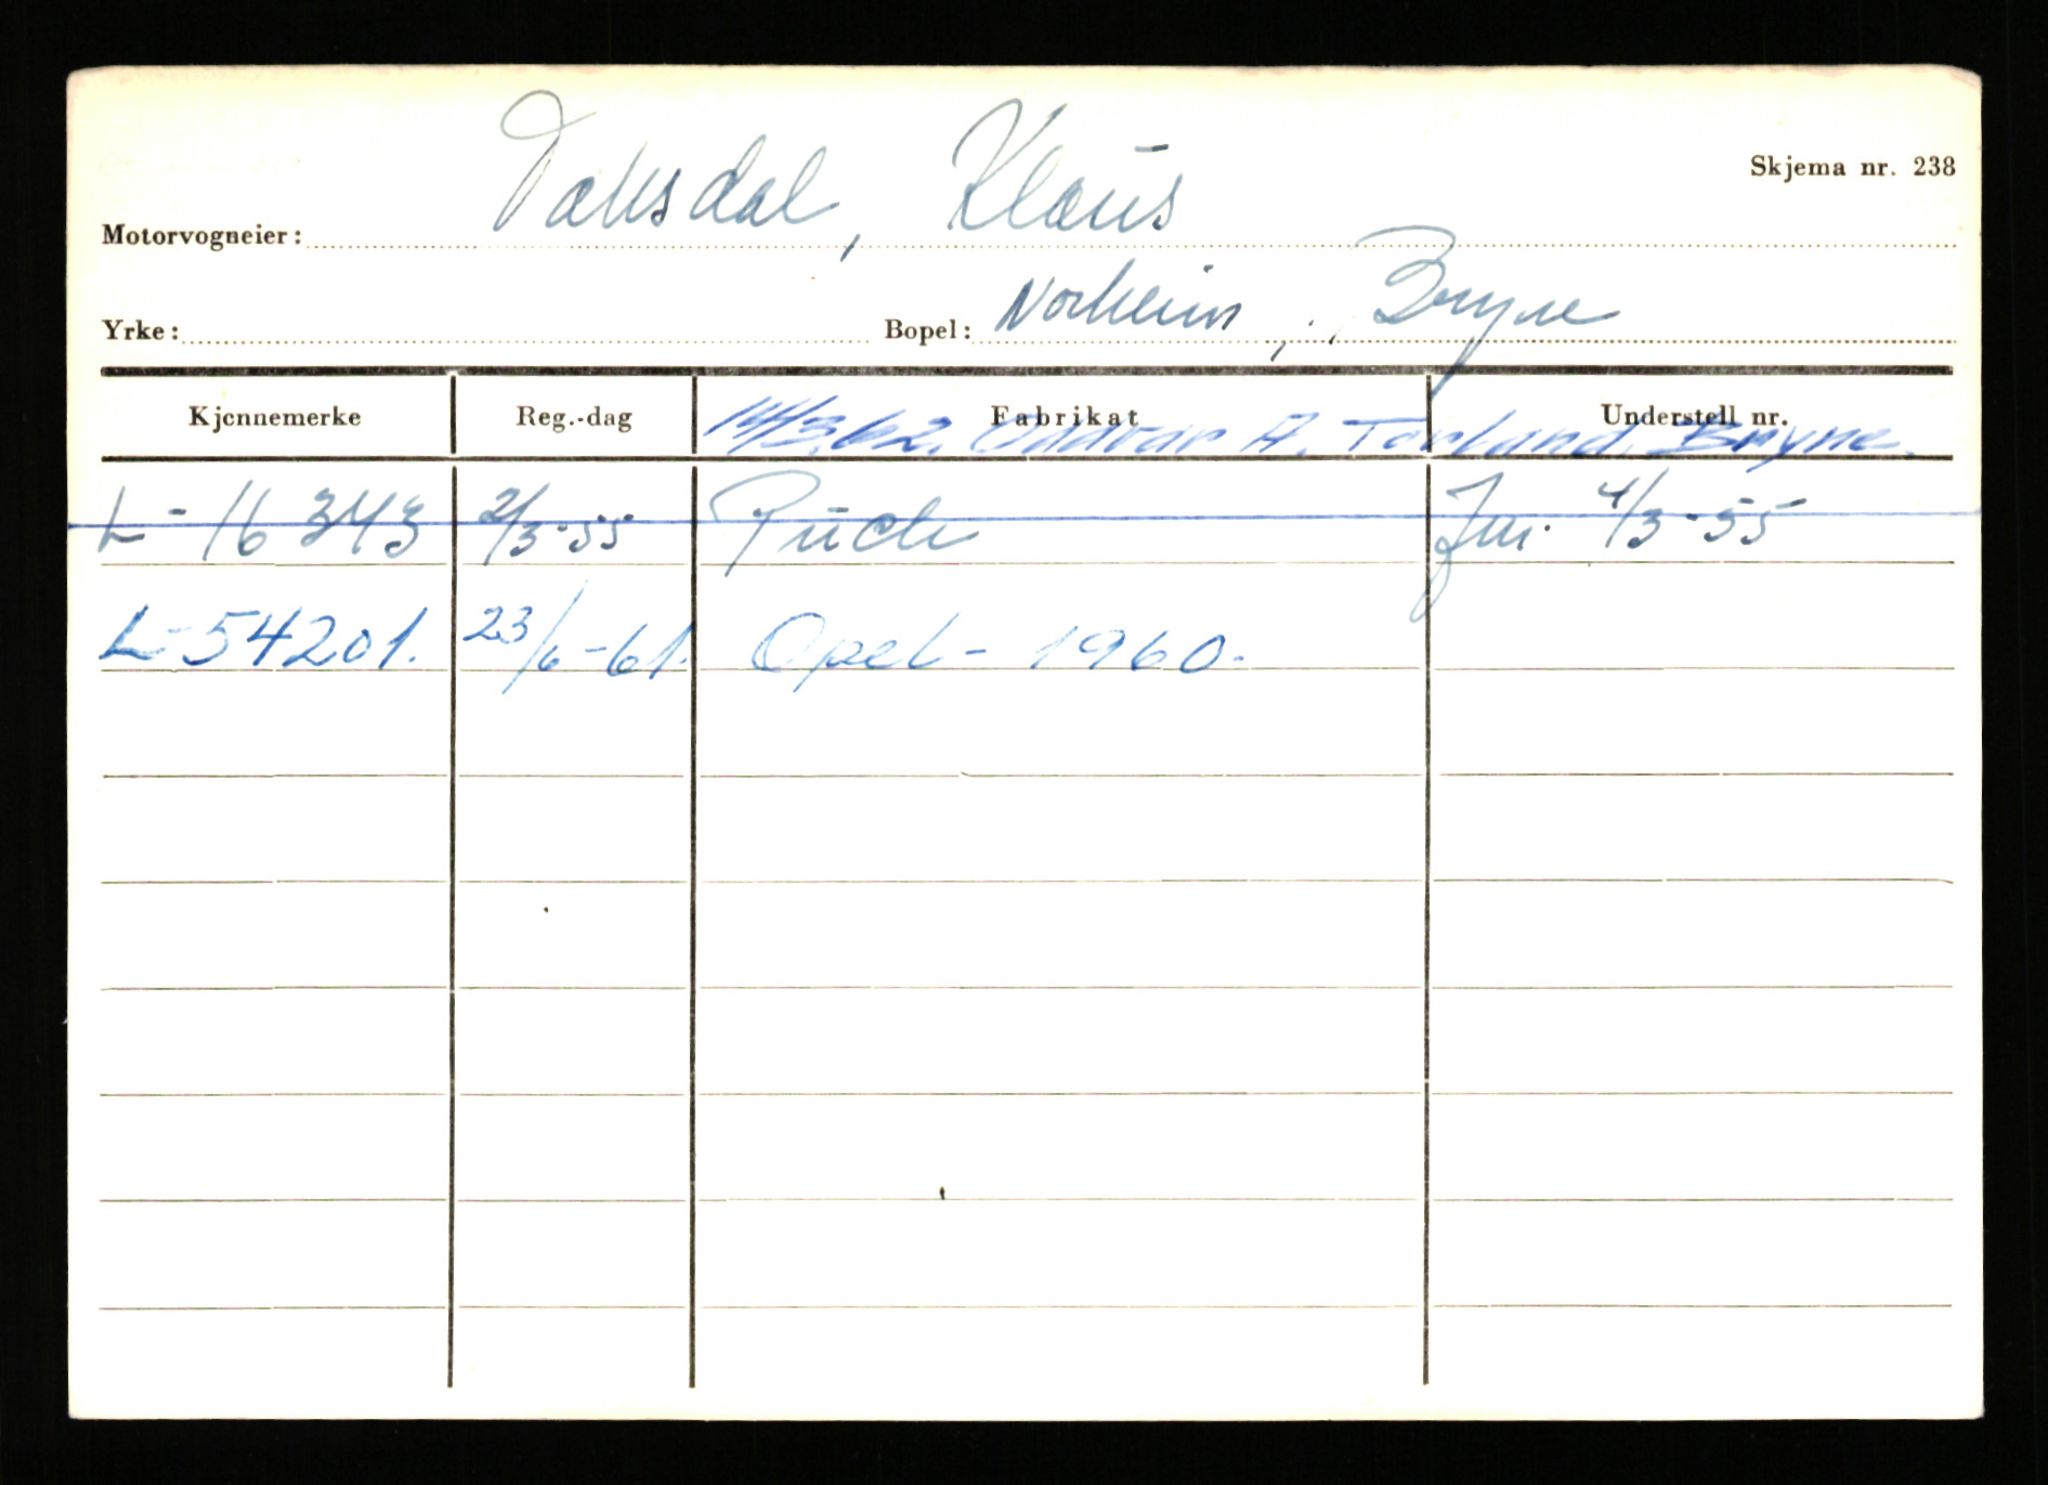 Skjema nr. 238
Motorvogneier: Taksdal, Klaus
Yrke: Bopel: Norheim, Bryne
Kjennemerke Reg.-dag Fabrikat Understell nr.
14/3.62. Oddvar A. Tarland, Bryne.
L-16343 2/3-55 Puch 4/3-55
L-54201. 23/6-61. Opel - 1960.